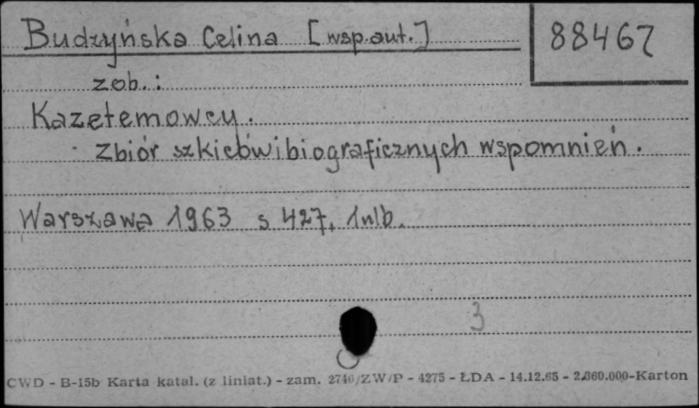 Budzyńska Celina [wsp.aut.]
88467
zob.:
Kazetemowcy.
Zbiór szkiców i biograficznych wspomnień.
Warszawa 1963 s 427, 1nlb.
3
CWD - B-15b Karta katal. (z liniat.) - zam. 2740/ZW/P - 4275 - ŁDA - 14.12.65 - 2.860.000-Karton